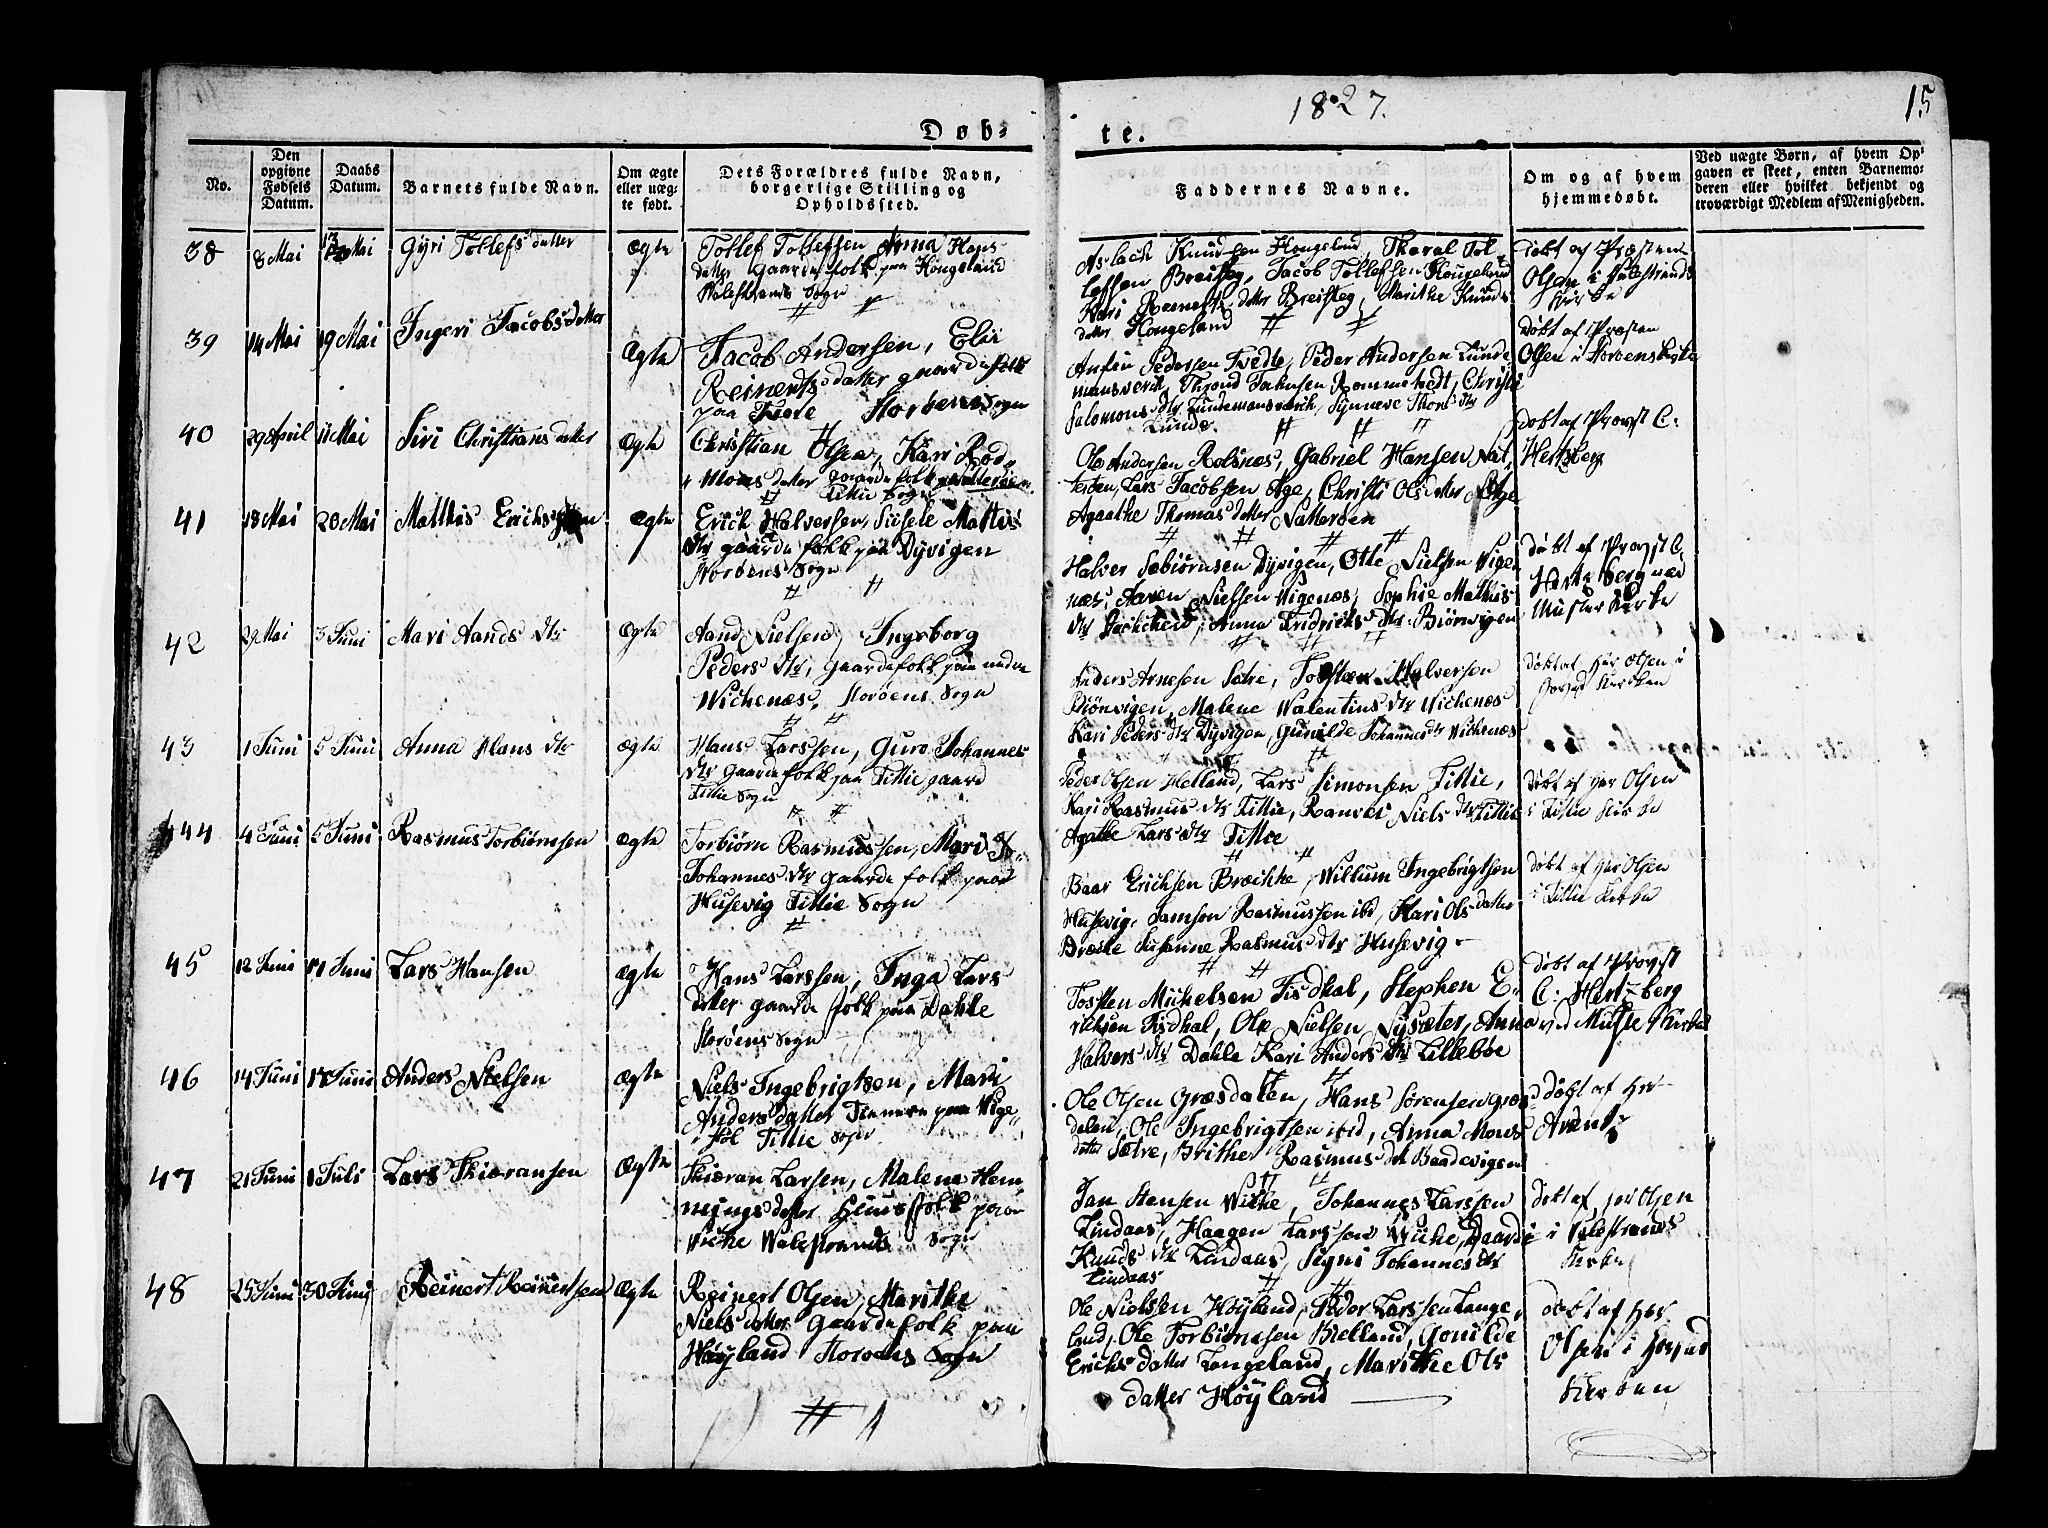 1827.
15
Døb-
te.
No.
Den opgivne Fødsels Datum.
Daabs Datum.
Barnets fulde Navn.
Om ægte eller uæg-te født.
Dets Forældres fulde Navn, borgerlige Stilling og Opholdssted.
Faddernes Navne.
Om og af hvem hjemmedøbt.
Ved uægte Børn, af hvem Op-gaven er skeet, enten Barnemo-deren eller hvilket bekjendt og troværdigt Medlem af Menigheden.
38 8 Mai 13 Mai Gyri Tollefs datter Ægte
Tollef Tollefsen Anna Hans
datter gaardefolk paa Hougeland
Walestrands Sogn
Aslach Knudsen Hougeland, Tol
lefsen Breisteg, Jacob Tollefsen Hougeland
Kari Reinerts datter Breisteg, Marithe Knuds
datter Hougeland
døbt af Præsten
Olsen i Valestrands
Kirke
39 14 Mai 19 Mai Ingeri Jacobs datter Ægte
Jacob Andersen, Eli
Reinerts datter gaardefolk
paa Storøens Sogn
Pedersen Tvedte, Peder Andersen Lunde
mansverk, Thrond Rommetvedt, Christi
Salomons dtr Lundemansverk, Synneve Thors dtr
Lunde
døbt af Præsten
Olsen i
40 29 April 11 Mai Siri Christians datter Ægte
Christian Olsen, Kari Rod
Moens datter gaardefolk
Fitlie Sogn
Ole Andersen Rolsnæs, Gabriel Hansen Nat,
terøen, Lars Jacobsen Age, Christi Ols datter Age
Agaathe Thomas datter Natterøen
døbt af Provst C.
Hertzberg
41 18 Mai 20 Mai Mathis Erichsen Ægte
Erich Halversen, Sissele Mattis
dtr gaardefolk paa Dyvigen
Storøens Sogn
Halver Dyvigen, Otte Nielsen Vigen
næs, Aaren Nielsen Vigenæs, Sophie Mathis
dtr Anna Fridrichs dtr Biørnvigen
døbt af Provst C.
Hertzberg ved
Muster Kirke
42 29 Mai 3 Juni Mari Aands dtr Ægte
Aand Nielsen, Ingeborg
Peders dtr, gaardefolk paa nedre
Wichenæs, Storøens Sogn
Anders Arnesen Sætre, Halversen
Biønvigen, Malene Walentins dtr Wichenæs
Kari Peders dtr Dyvigen, Gunilde Johannes dtr Wichenæs
døbt af Her Olsen i
Kirken
43 1 Juni 5 Juni Anna Hans dtr ægte
Hans Larssen, Guro Johannes
dtr gaardefolk paa Fitlie gaard
Fitlie Sogn
Peder Olsen Helland, Lars Simonsen Fitlie,
Kari Rasmus dtr Fitlie, Ranvei Niels dtr Fitlie
Agathe Lars dtr Fitlie
døbt af Her Olsen
i Fitlie Kirke
44 4 Juni 5 Juni Rasmus Torbiørnsen Ægte
Torbiørn Rasmussen, Mari
Johannes dtr gaardefolk paa
Husevig Fitlie Sogn
Baar Erichsen Bræche, Willum Ingebrigtsen
Husevig, Samson Rasmussen ibd, Kari Ols datter
Bræche Susanne Rasmus dtr Husevig
døbt af Her Olsen
i Fitlie Kirke
45 12 Juni 17 Juni Lars Hansen Ægte
Hans Larssen, Inga Lars
datter gaardefolk paa Dahle
Storøens Sogn
Tosten Michelsen Fisdhal, Stephen E
richsen Fisdhal, Ole Nielsen Nysæter, Anna
Halvers dtr Dahle Kari Anders dtr Lillebøe
døbt af Provst
C. Hertzberg
ved Muste Kirke
46 14 Juni 17 Juni Anders Nielsen Ægte
Niels Ingebrigtsen, Mari
Anders datter paa Vige
Fitlie Sogn
Ole Olsen Græsdalen, Hans Sørensen Græs
dalen, Ole Ingebrigtsen ibid, Anna Mons
datter Sætre, Brithe Rasmus dtr Baadevigen
døbt af Hr
Arentz
47 21 Juni 1 Juli Lars Thieransen Ægte
Thieran Larsen, Malena Hem
mings datter Huusfolk paa
Wiche Walestrands Sogn
Jan Hansen Wiche, Johannes Larssen
Lindaas, Haagen Larssen Wiche,
Knuds dtr Lindaas, Signi Johannes dtr
Lindaas
døbt af Her Olsen
i Valestrands
Kirke
48 25 Juni 30 Juni Reinert Reinertsen Ægte
Reinert Olsen, Marithe
Niels datter Gaardefolk paa
Høyland Storøens Sogn
Ole Nielsen Høyland, Peder Larssen Lange
land, Ole Torbiørnsen Bielland, Gonilde
Erichs datter Langeland, Marithe Ols
datter Høyland
døbt af Her
Olsen i
Kirken